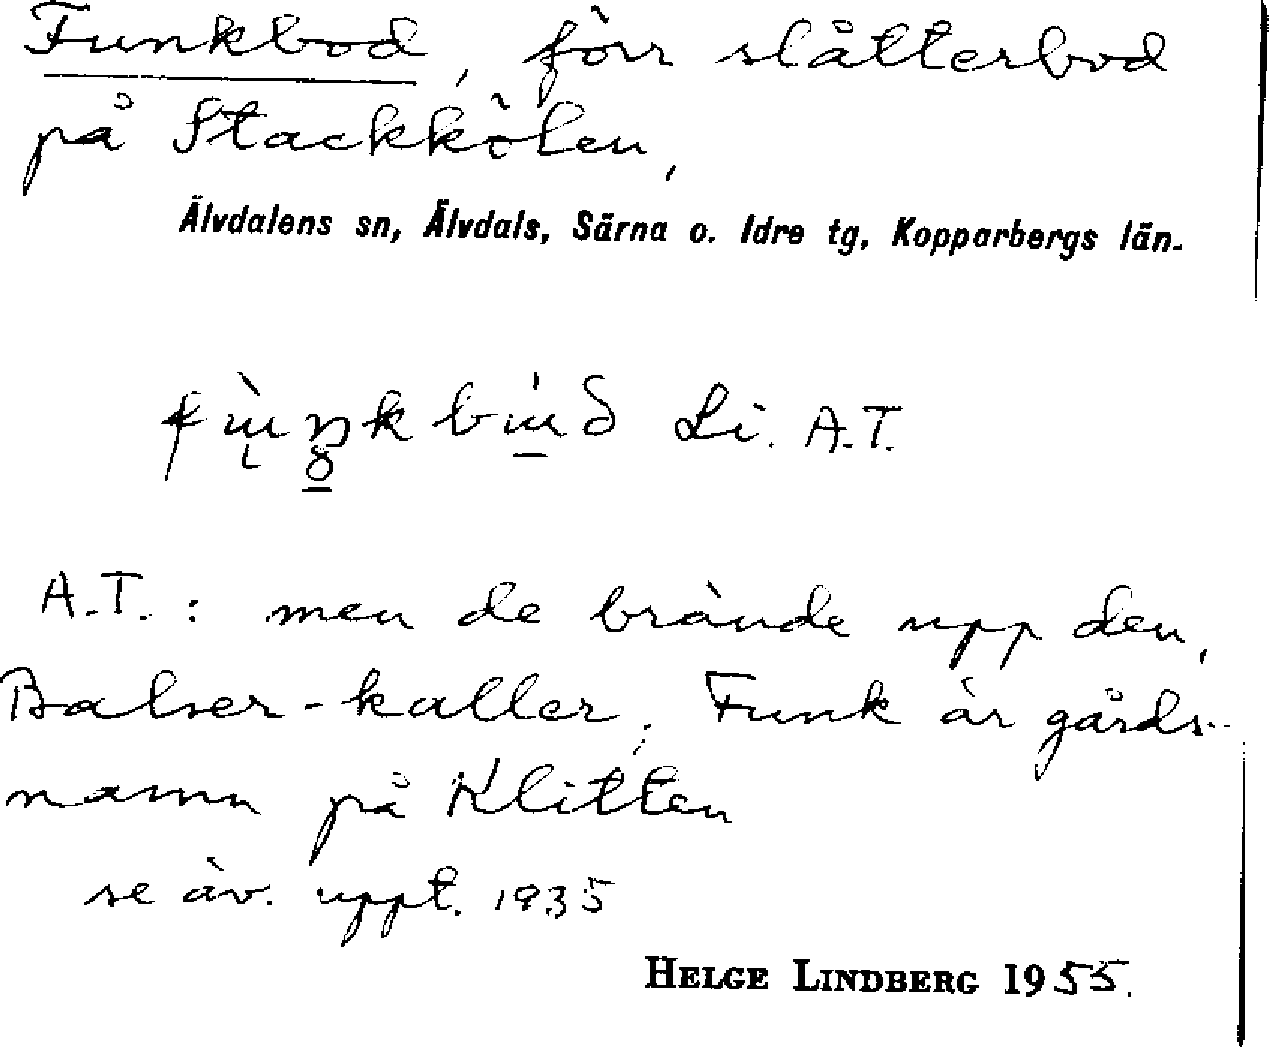 Funkbod, förr slåtterbod
på Stackkölen,
Älvdalens sn, Älvdals, Särna o. Idre tg, Kopparbergs län.
Li. A.T.
A.T. : men de brände upp den,
Balser-kaller. Funk är gårds-
namn på Klitten
se äv. uppt. 1935
HELGE LINDBERG 1955.